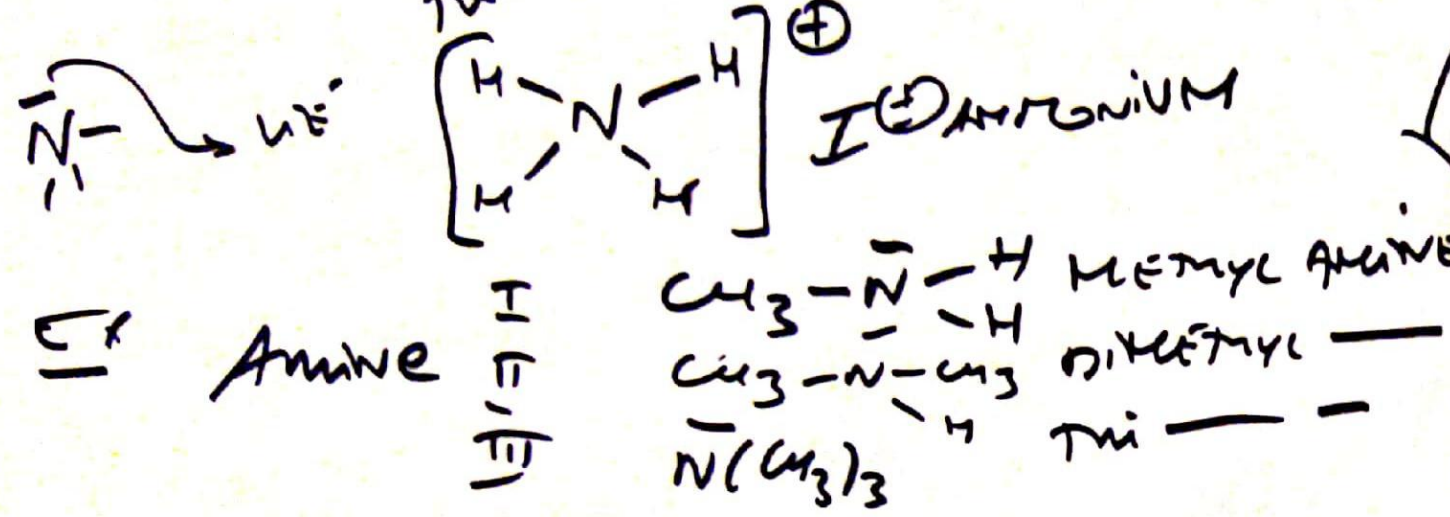 N → LIÉ [H H N H H]⊕ I⊖ AMMONIUM
Ex Amine I CH3 – N – H H METHYL AMINE
II CH3 – N – CH3 H DIMETHYL —
III N(CH3)3 TRI — –